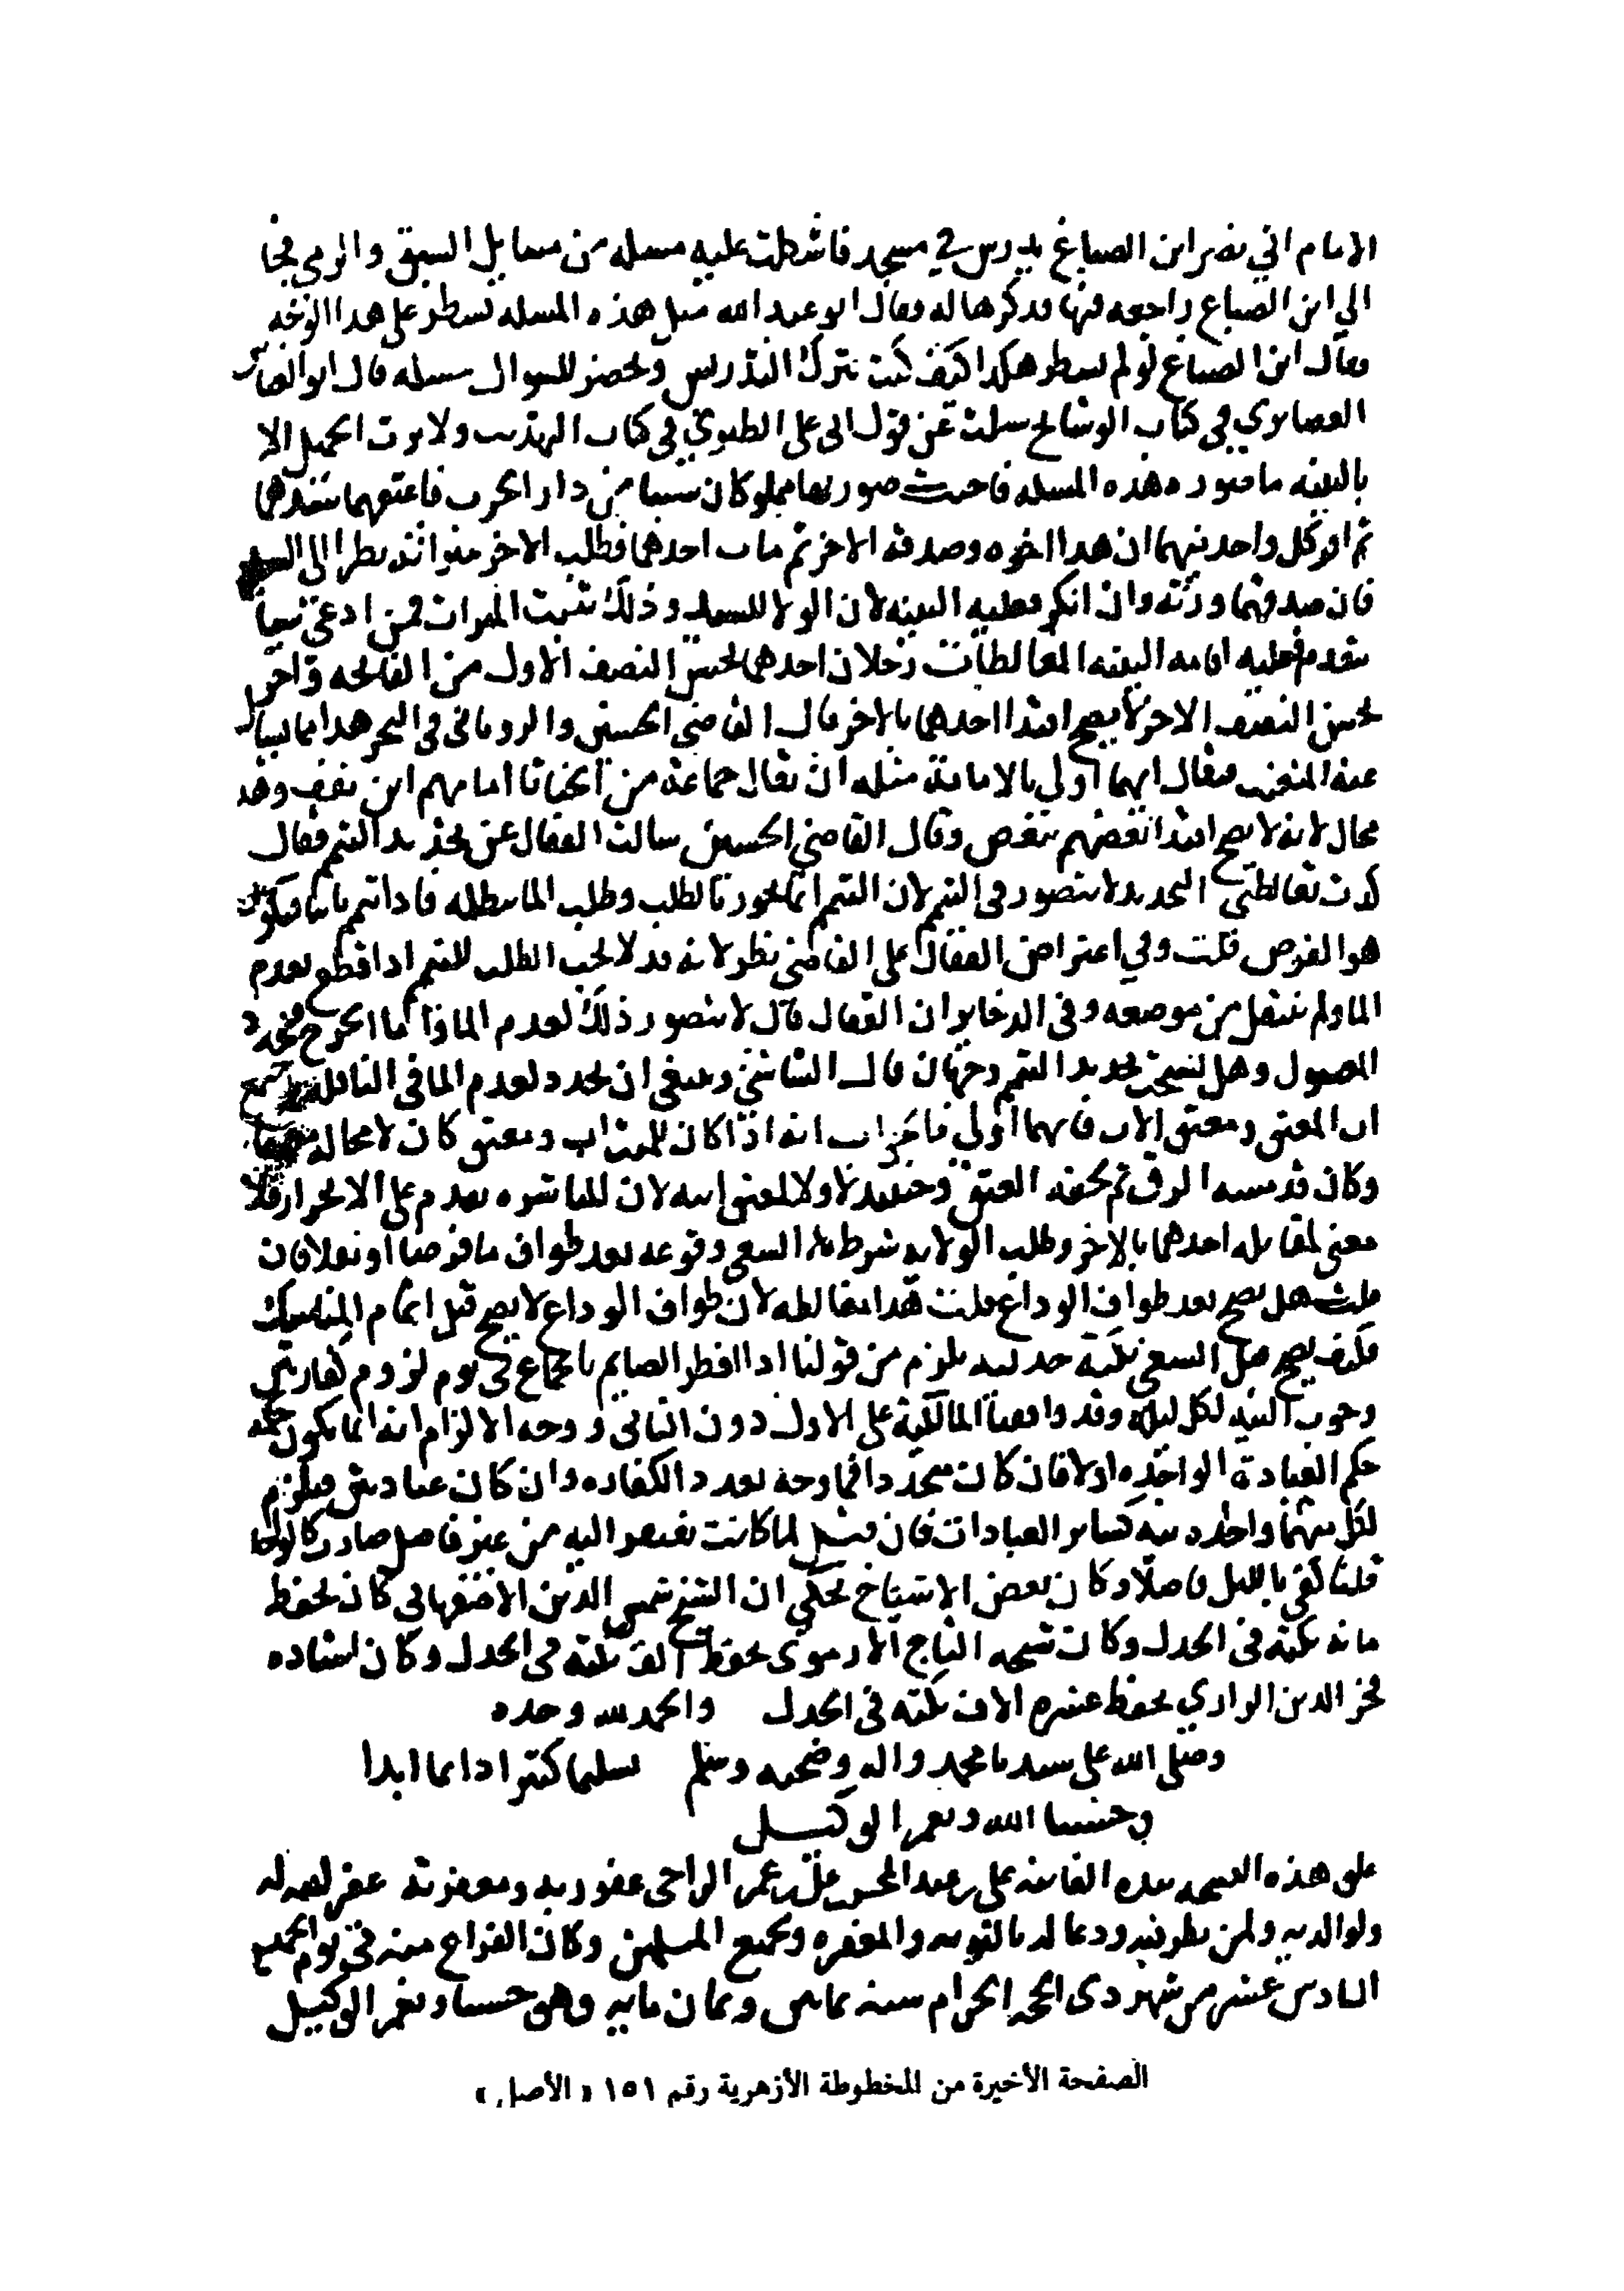 الامام ابي نصر ابن الصباغ يدرس في مسجد فاشكلت عليه مسله من مسايل السبق والرمي فجا
الي ابن الصباغ راجعه فيها فذكرها له فقال ابو عبد الله مثل هذه المسله تسطر على هذا الوجه
فقال ابن الصباغ لو لم تسطر هكذا كيف كنت تترك التدريس وتحضر للسوال مسله قال ابو
في كتاب الوشاح سيلت عن قول ابي على الطبري في كتاب ولا يرث الحميل الا
بالبينه ما صوره هذه المسله فاجبت صورتها مملوكان سبيا من دار الحرب فاعتقهما سيدهما
ثم اقر كل واحد منهما ان هذا اخوه وصدقه الاخر ثم مات احدهما فطلب الاخر ميراثه نظر الى السيد
فان صدقهما ورثه وان انكر فعليه البينه لان الولا للسيد وذلك يثبت الميراث فمن ادعى نسبا
يتقدم فعليه اقامه البينه المغالطات رجلان احدهما يحسن النصف الاول من الفاتحه واخر
يحسن النصف الاخر لا يصح اقتدا احدهما بالاخر قال القاضي الحسين والروياني في البحر هذا مما يسال
عنه فيقال ايهما اولي بالامامة مثله ان يقال جماعة من الخناثا امامهم اين يقف وهذ
محال لانه لا يصح اقتدا بعضهم ببعض وقال القاضي الحسين سالت القفال عن تجديد التيمم فقال
كدت تغالطني التجديد لا يتصور في التيمم لان التيمم انما يجوز بالطلب وطلب الما يبطله فاذا تيمم ثانيا فيكون
هو الفرض قلت وفي اعتراض القفال على القاضي نظر لانه قد لا يجب الطلب للتيمم اذا قطع بعدم
الما ولم ينتقل من موضعه وفي الذخاير ان القفال قال لا يتصور ذلك لعدم الما فاما الجريح
وهل يستحب تجديد التيمم وجهان قال الشاشي وينبغي ان يجدد لعدم الما في النافله
اب المعتق ومعتق الاب فايهما اولي فالجواب انه اذا كان للميت اب ومعتق كان لا محاله
وكان قد مسه الرق ثم لحقه العتق وحينيذ لا ولا لمعتق ابيه لان المباشره يقدم على الانجرار فلا
معني لمقابله احدهما بالاخر وطلب الولايه شرط السعي وقوعه بعد طواف ما فرضا او نفلا فان
قلت هل يصح بعد طواف الوداع قلت هذا مغالطه لان طواف الوداع لا يصح قبل اتمام المناسك
فكيف يصح قبل السعي نكتة يلزم من قولنا اذا افطر الصايم بالجماع في يوم لزوم كفارتين
وجوب النيه لكل ليله وقد وافقنا المالكية على الاول دون الثاني ووجه الالزام انه اما يكون حكمه
حكم العبادة الواحده اولا فان كان متحدا فما وجه تعدد الكفاره وان كان عبادتين فيلزم
لكل منهما واحده نيه كساير العبادات فان قيل لما كانت تفتقر اليه من غير فاصل صارت كالواحدة
قلنا كفي بالليل فاصلا وكان بعض الاشياخ يحكي ان الشيخ شمس الدين الاصفهاني كان يحفظ
مايه نكته في الجدل وكان شيخه التاج الارموى يحفظ الف نكته في الجدل وكان استاده
فخر الدين الرازي يحفظ عشره الاف نكته في الجدل والحمد لله وحده
وصلى الله على سيدنا محمد واله وصحبه وسلم تسليما كثيرا دايما ابدا
وحسبنا الله ونعم الوكيل
علق هذه النسخه بيده الفانيه على بن عبد المحسن بن عمر الراجى عفو ربه ومغفرته غفر الله له
ولوالديه ولمن نظر فيه ودعا له بالتوبه والمغفره ولجميع المسلمين وكان الفراغ منه في يوم
السادس عشر من شهر ذي الحجه الحرام سنه ثمانين وثمان مايه وهو حسبنا ونعم الوكيل
الصفحة الأخيرة من المخطوطة الأزهرية رقم ١٥١ « الأصل »